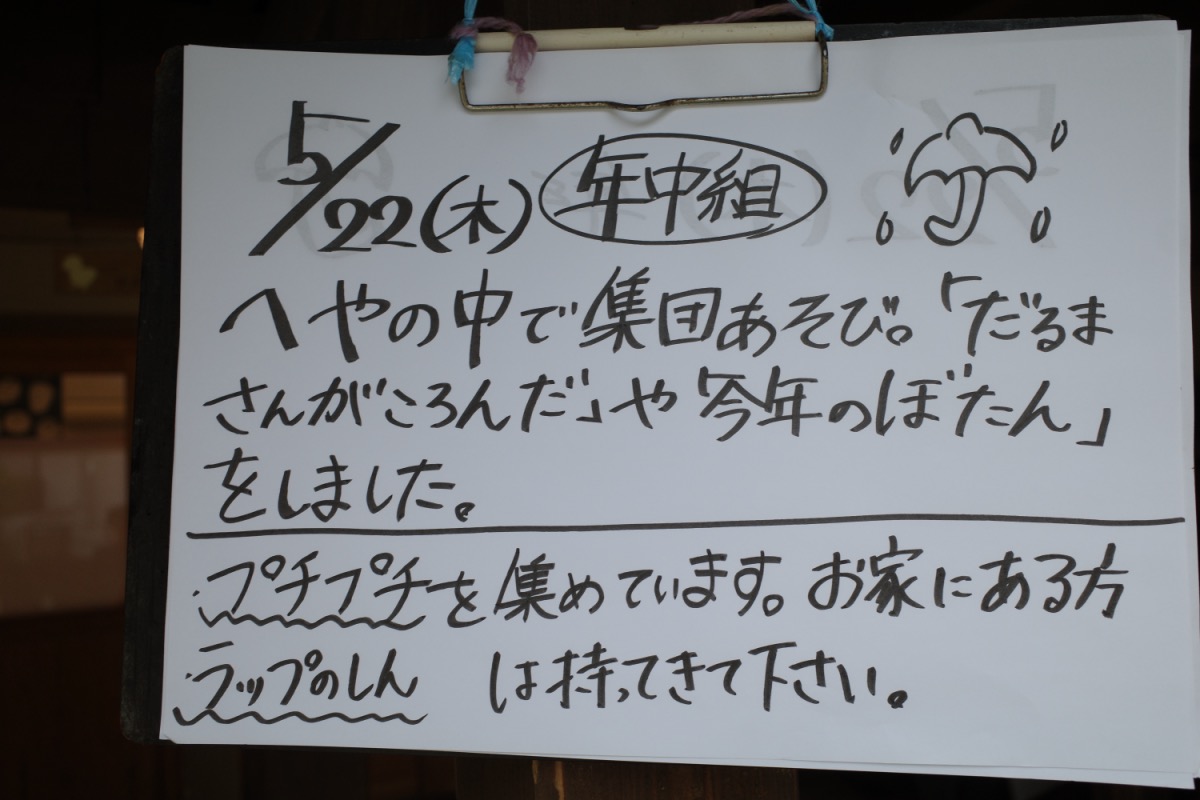 5/22(木) 年中組
へやの中で集団あそび。「だるま
さんがころんだ」や「今年のぼたん」
をしました。
・プチプチを集めています。お家にある方
・ラップのしん は持ってきて下さい。